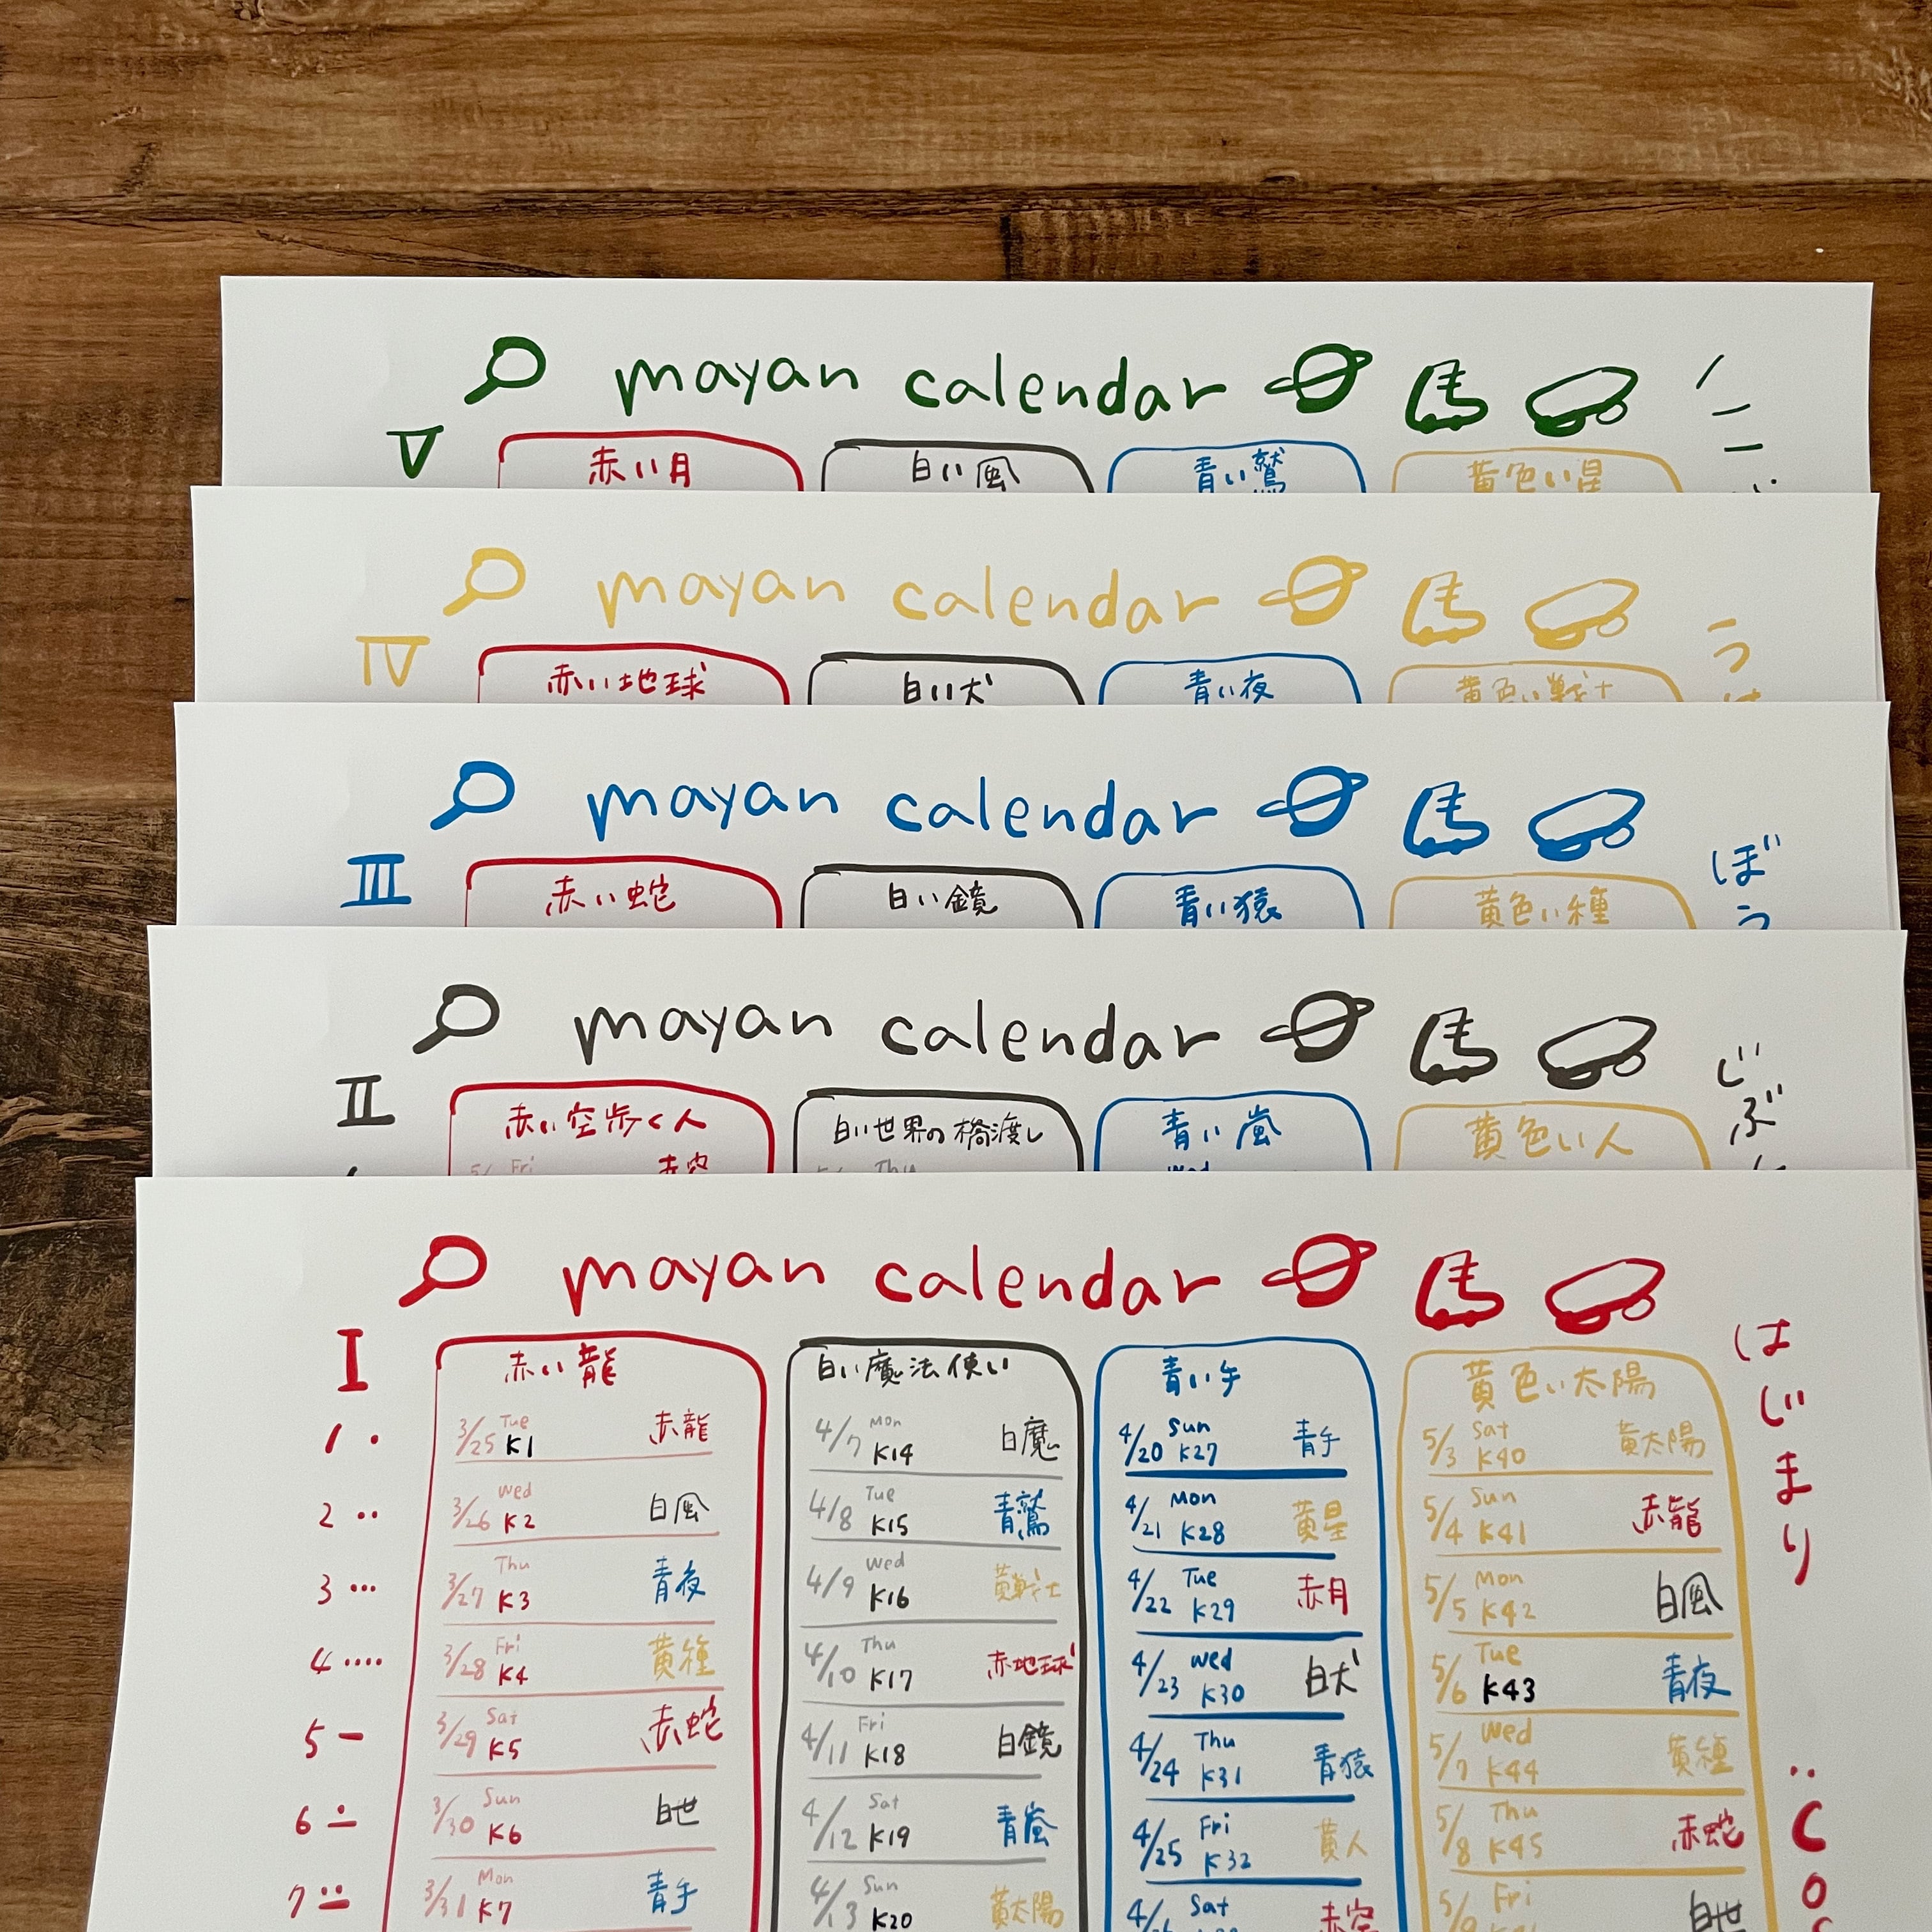 mayan calendar 馬
V
赤い月 白い風 青い鷲 黄色い星
mayan calendar 馬
IV
う
赤い地球 白い犬 青い夜 黄色い戦士
mayan calendar 馬
III
ぼう
赤い蛇 白い鏡 青い猿 黄色い種
mayan calendar 馬
II
じぶ
赤い空歩く人 白い世界の橋渡し 青い嵐 黄色い人
Fri 赤空 Thu Wed
mayan calendar 馬
I
はじまり
赤い龍 白い魔法使い 青い手 黄色い太陽
1 • 3/25 Tue K1 赤龍 4/7 Mon K14 白魔 4/20 Sun K27 青手 5/3 Sat K40 黄太陽
2 •• 3/26 Wed K2 白風 4/8 Tue K15 青鷲 4/21 Mon K28 黄星 5/4 Sun K41 赤龍
3 ••• 3/27 Thu K3 青夜 4/9 Wed K16 黄戦士 4/22 Tue K29 赤月 5/5 Mon K42 白風
4 •••• 3/28 Fri K4 黄種 4/10 Thu K17 赤地球 4/23 Wed K30 白犬 5/6 Tue K43 青夜
5 — 3/29 Sat K5 赤蛇 4/11 Fri K18 白鏡 4/24 Thu K31 青猿 5/7 Wed K44 黄種
6 3/30 Sun K6 白世 4/12 Sat K19 青嵐 4/25 Fri K32 黄人 5/8 Thu K45 赤蛇
7 3/31 Mon K7 青手 4/13 Sun K20 黄太陽 Sat 赤空 Fri 白世
Co